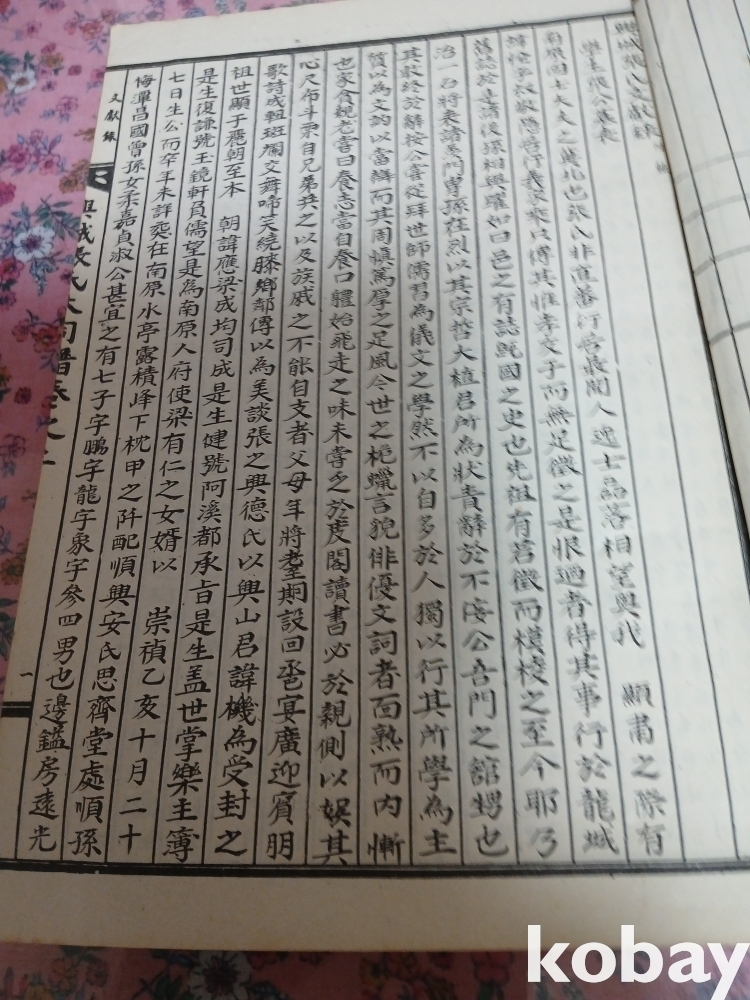 興城張氏文獻錄
學圭張公墓表
南原固士大夫之冀北也張氏非直蕃衍房最聞人逸士磊落相望與我 顯肅之際有
諱 字叔 隱居行義家乘以傅其惟孝文子而無足徵之是恨廼者得其事行於龍城
舊誌於是諸後孫相與躍如曰邑之有誌 國之史也先祖有宮徵而 之至今耶乃
治一石將表諸墓門曾孫在烈以其宗哲大植君所為狀責辭於不侫公吾門之館甥也
其敢終於辭按公嘗從拜世師儒習為儀文之學然不以自多於人獨以行其所學為主
質以為文訥以當辯而其周愼篤厚之足風令世之梔蠟言貌俳優文詞者面熟而內慚
也家貧親老嘗曰養志當自養口體始飛走之味未嘗乏於庋閣讀書必於親側以娛其
心尺布斗粟自兄弟共之以及族戚之不能自支者父母年將耋期設回巹宴廣迎賓朋
歌詩成輯斑爛交舞啼笑繞膝鄉鄰傳以為美談張之興德氏以興山君諱機為受封之
祖世顯于麗朝至本 朝諱應梁成均司成是生健號阿溪都承旨是生盖世掌樂主簿
是生復謙號玉鏡軒負儒望是為南原人府使梁有仁之女婿以 崇禎乙亥十月二十
七日生公而卒年未詳葬在南原水亭露積峰下枕甲之阡配順興安氏思齊堂處順孫
悔潭昌國曾孫女柔嘉貞淑公甚宜之有七子字鵬字龍字象字參四男也邊鎰房遠光
文獻錄
興城張氏大同譜卷之二
一
kobay